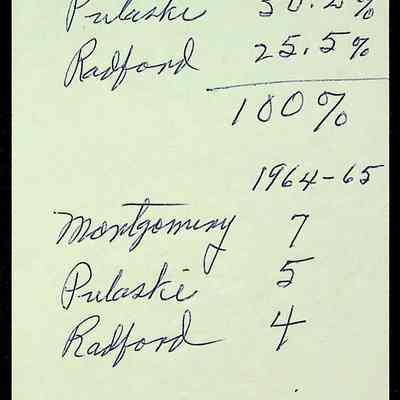 Pulaski 30.2%
Radford 25.5%
100%
1964-65
Montgomery 7
Pulaski 5
Radford 4